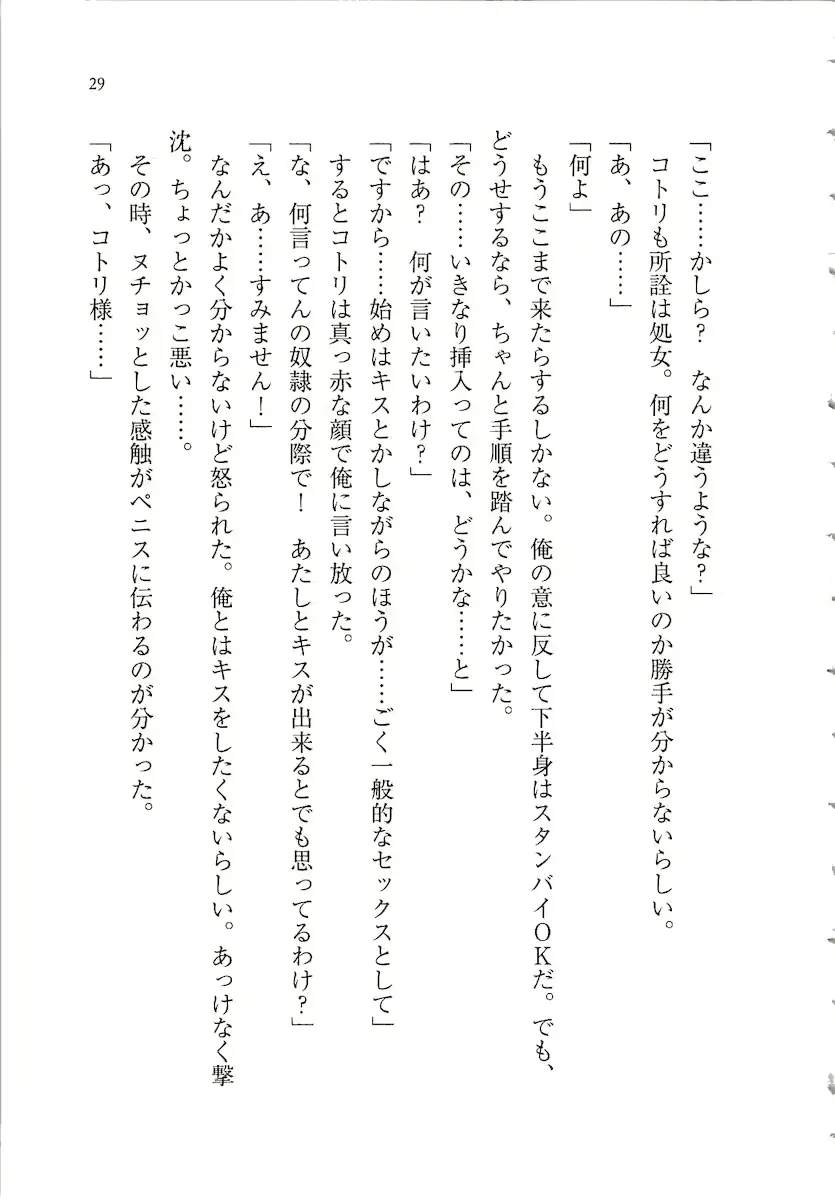 29
「ここ……かしら？　なんか違うような？」
コトリも所詮は処女。何をどうすれば良いのか勝手が分からないらしい。
「あ、あの……」
「何よ」
もうここまで来たらするしかない。俺の意に反して下半身はスタンバイＯＫだ。でも、
どうせするなら、ちゃんと手順を踏んでやりたかった。
「その……いきなり挿入ってのは、どうかな……と」
「はあ？　何が言いたいわけ？」
「ですから……始めはキスとかしながらのほうが……ごく一般的なセックスとして」
するとコトリは真っ赤な顔で俺に言い放った。
「な、何言ってんの奴隷の分際で！　あたしとキスが出来るとでも思ってるわけ？」
「え、あ……すみません！」
なんだかよく分からないけど怒られた。俺とはキスをしたくないらしい。あっけなく撃
沈。ちょっとかっこ悪い……。
その時、ヌチョッとした感触がペニスに伝わるのが分かった。
「あっ、コトリ様……」